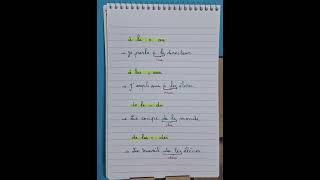 à le = au
→ je parle à le directeur
au
à les = aux
→ J'explique à les élèves
aux
de le = du
→ La coupe de le monde
du
de les = des
→ Le travail de les
des